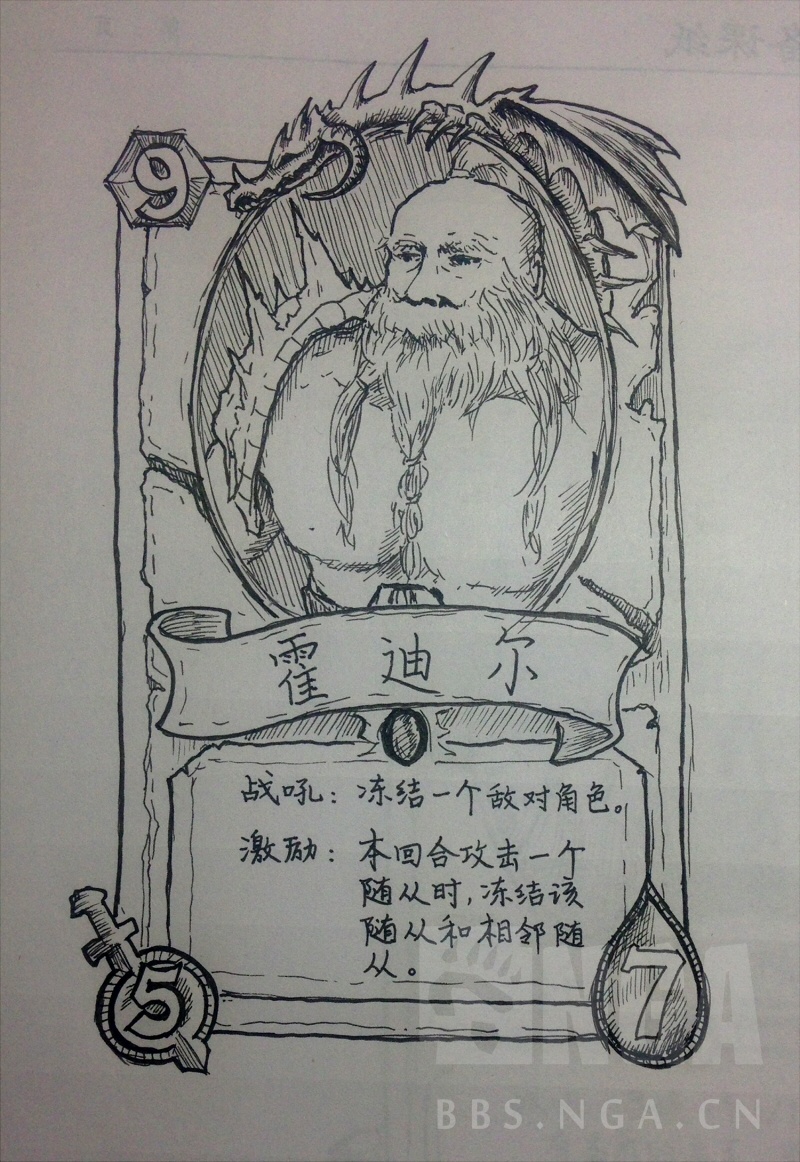 9
霍迪尔
战吼：冻结一个敌对角色。
激励：本回合攻击一个
随从时，冻结该
随从和相邻随
从。
5
7
NGA
BBS.NGA.CN